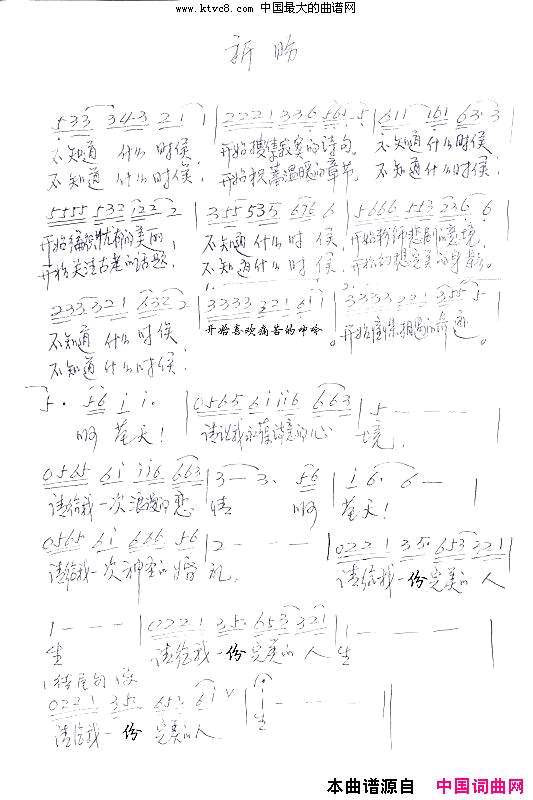 www.ktvc8.com 中国最大的曲谱网
新盼
533 34·3 2 1 1 | 2221 336 561·5 | 611 161 63·3
不知道 什么 时候, 开始搜集寂寞的诗句, 不知道什么时侯
不知道 什么 时侯, 开始积蓄温暖的章节, 不知道什么时侯
5555 532 1222 | 355 535 676 6 | 5666 553 236 6
开始编织忧郁的美丽, 不知道什么时侯,
开始关注古老的话题, 不知道什么时侯, 开始幻想完美的身影。
233 321 632 2 | 3333 221 6 1 | 3333 221 355 5
不知道 什么 时侯 开始喜欢痛苦的呻吟。 开始图集相遇的奇迹。
不知道什么时侯:
5· 56 i i· | 0565 6iii6 663 | 5 - - -
啊 苍天! 请让我永葆诗意的心 境,
0565 6i ii6 663 | 3 - 3· 56 | i 6· 6 - |
请给我一次浪漫的恋 情 啊 苍天!
0565 6i 666 56 | 2 - - - | 0221 35· 653 321
请给我一次神圣的婚 礼, 请给我一份完美的人
1 - - - | 0221 35· 653 321 | 1 - - -
生 请给我一份完美的人 生
结尾
0221 35· 65· 6i ∨ | i - - - ‖
请给我一份 完美的人 生
本曲谱源自 中国词曲网